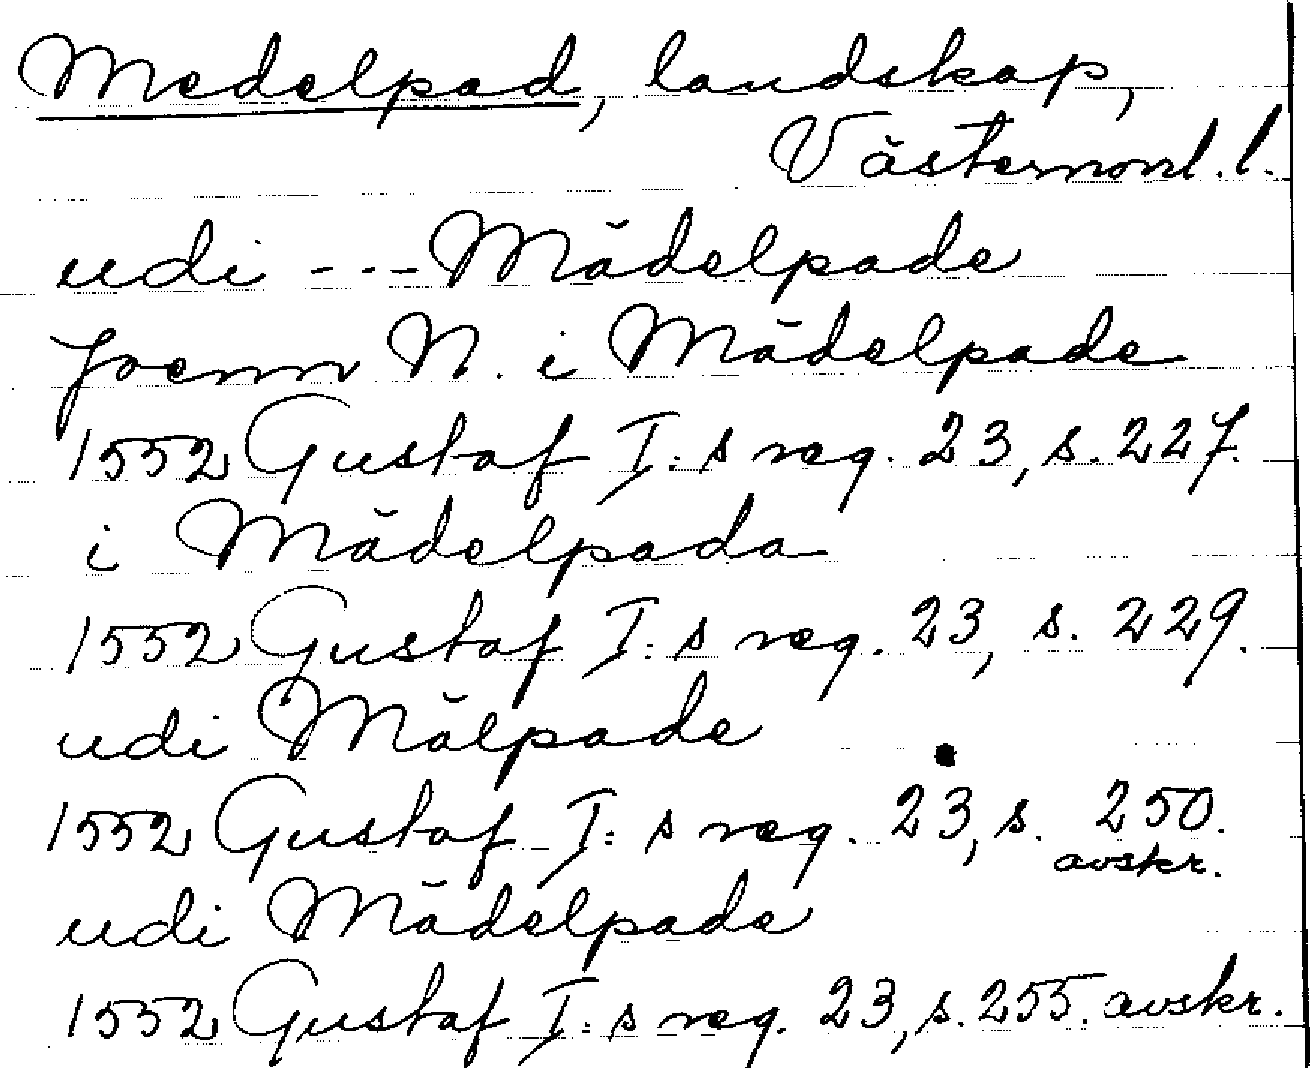 Medelpad, landskap,
Västernorrl. l.
udi --- Mädelpade
Joenn N. i Mädelpade
1552 Gustaf I: s reg. 23, s. 227.
i Mädelpada
1552 Gustaf I: s reg. 23, s. 229.
udi Mälpade
1552 Gustaf I: s reg. 23, s. 250.
avskr.
udi Mädelpade
1552 Gustaf I: s reg. 23, s. 255. avskr.